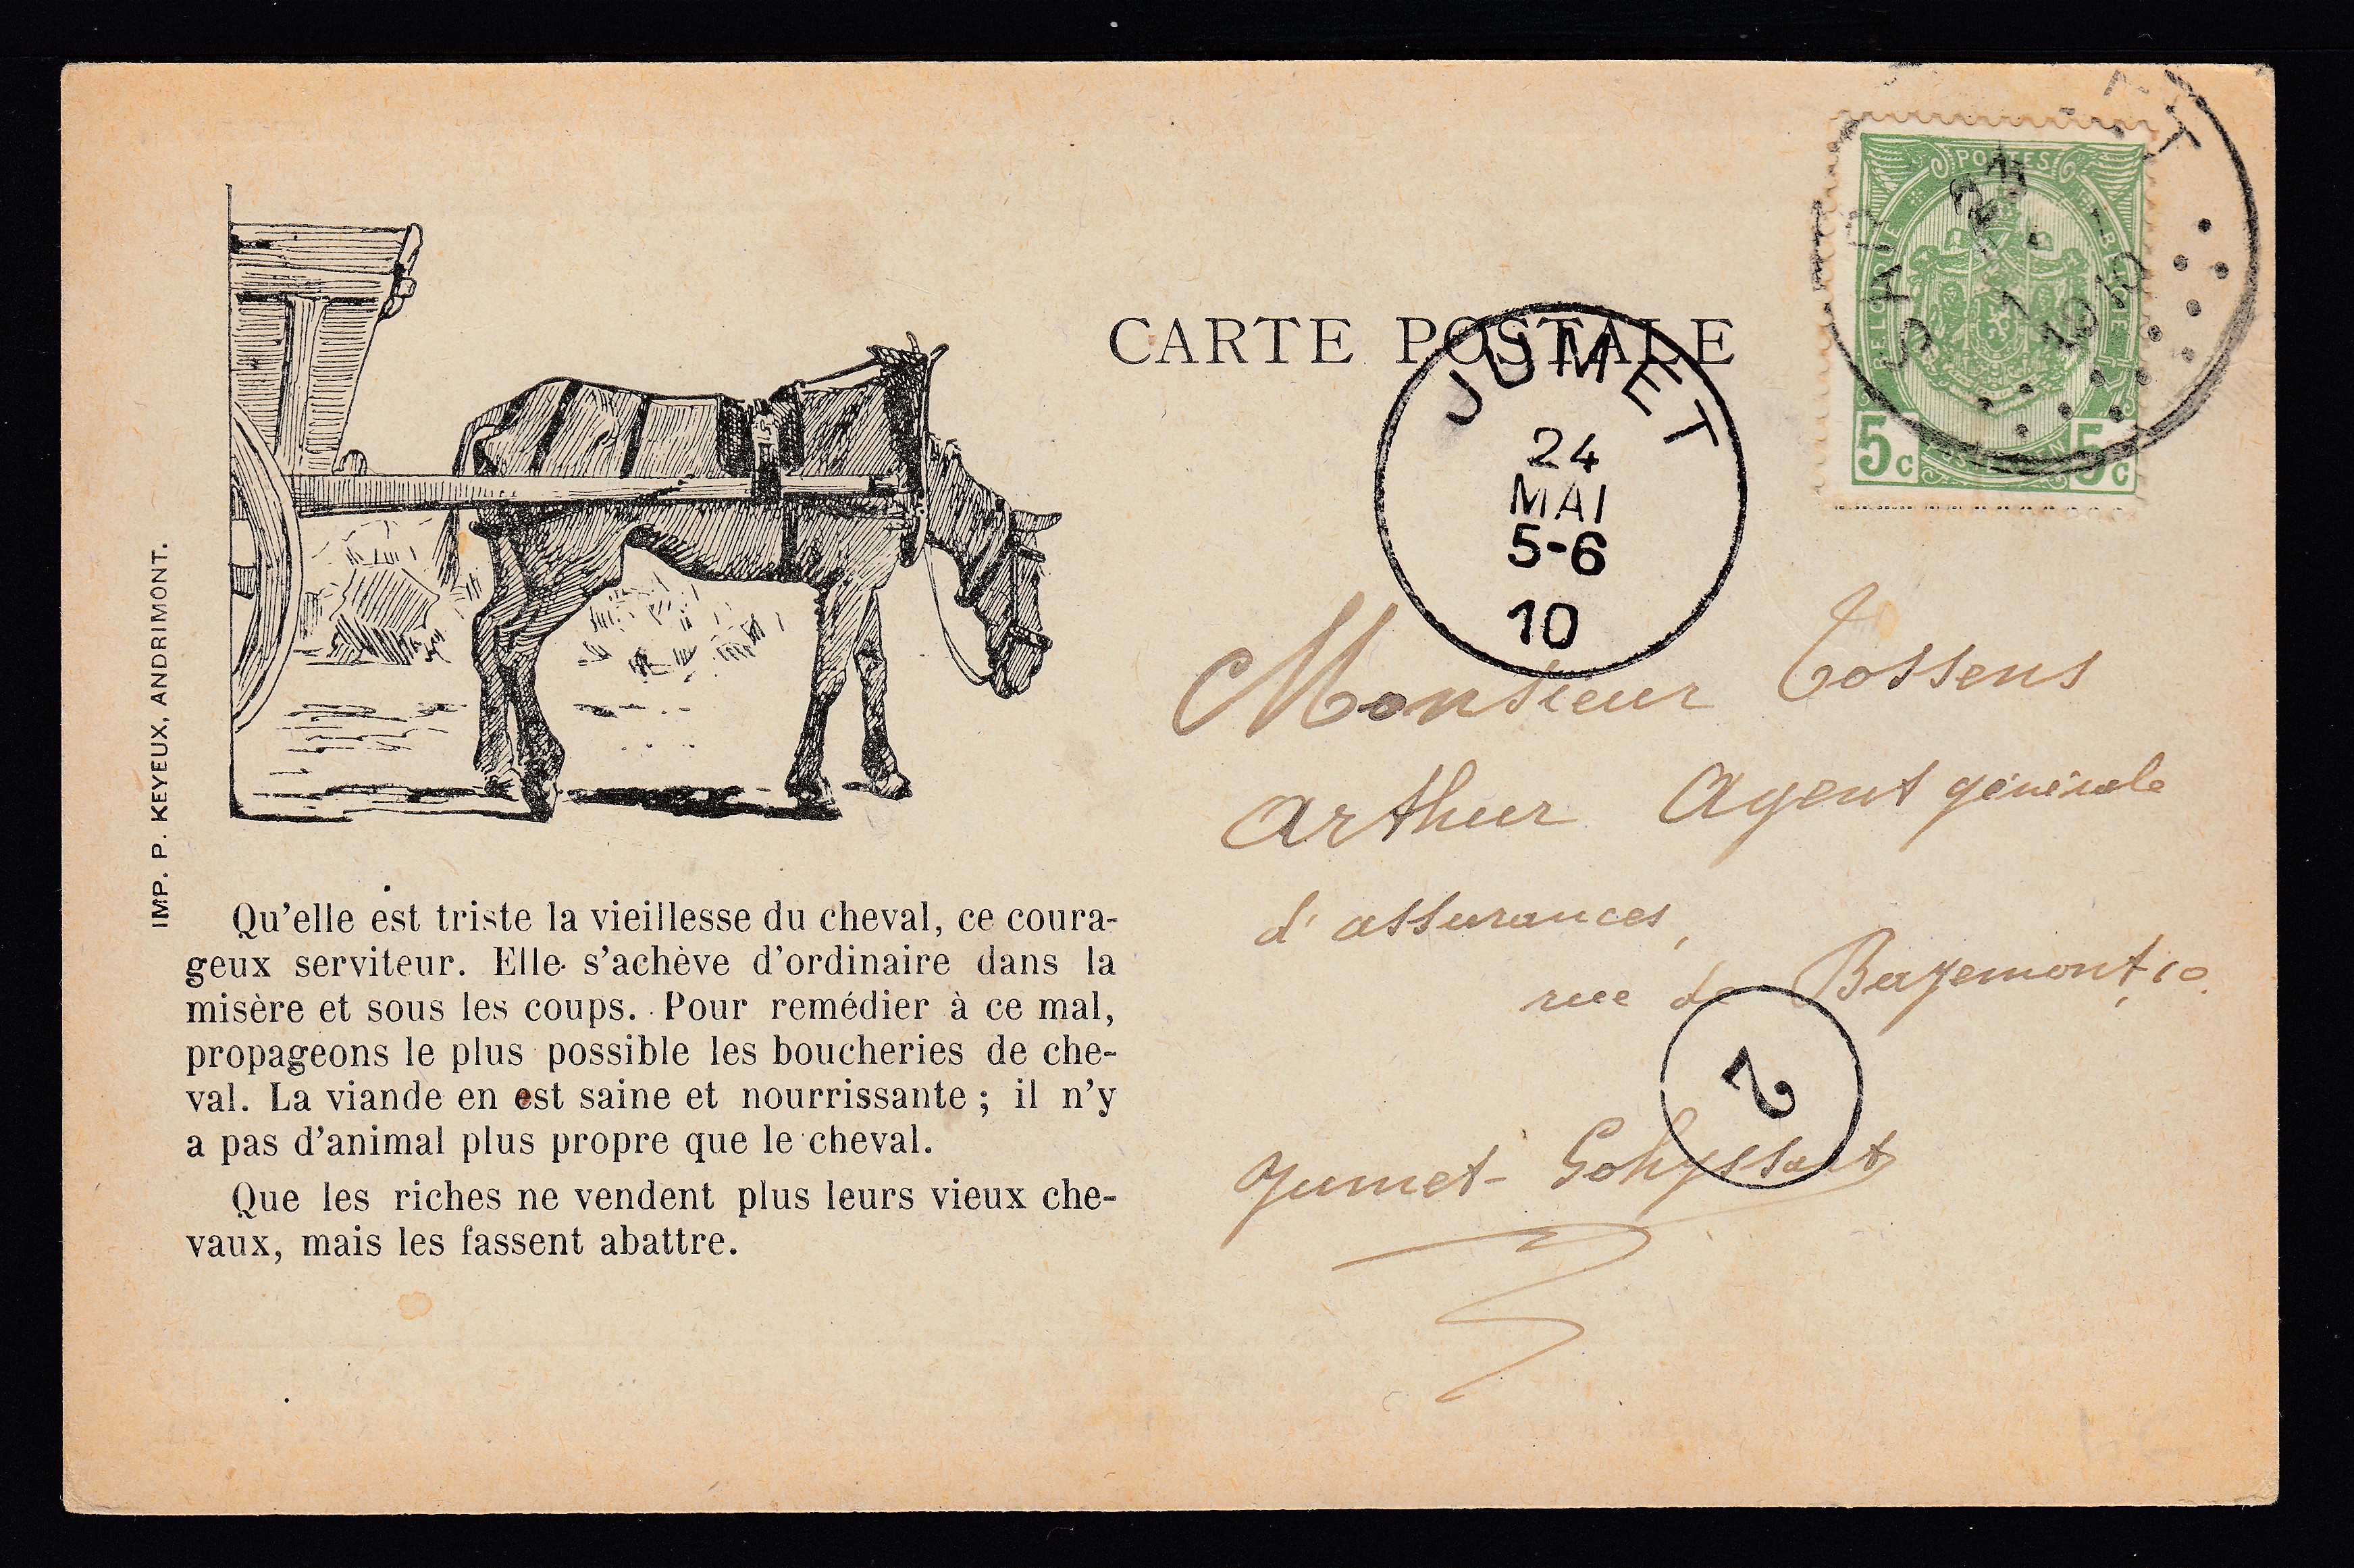 IMP. P. KEYEUX, ANDRIMONT.
Qu'elle est triste la vieillesse du cheval, ce coura-
geux serviteur. Elle s'achève d'ordinaire dans la
misère et sous les coups. Pour remédier à ce mal,
propageons le plus possible les boucheries de che-
val. La viande en est saine et nourrissante ; il n'y
a pas d'animal plus propre que le cheval.
Que les riches ne vendent plus leurs vieux che-
vaux, mais les fassent abattre.
CARTE POSTALE
JUMET
24
MAI
5-6
10
POSTES
BELGIQUE BELGIE
5c 5c
SAR T
23
1910
Monsieur Tossens
Arthur Agent générale
d'assurances,
rue de Bayemont, 10.
2
Jumet-Gohyssart